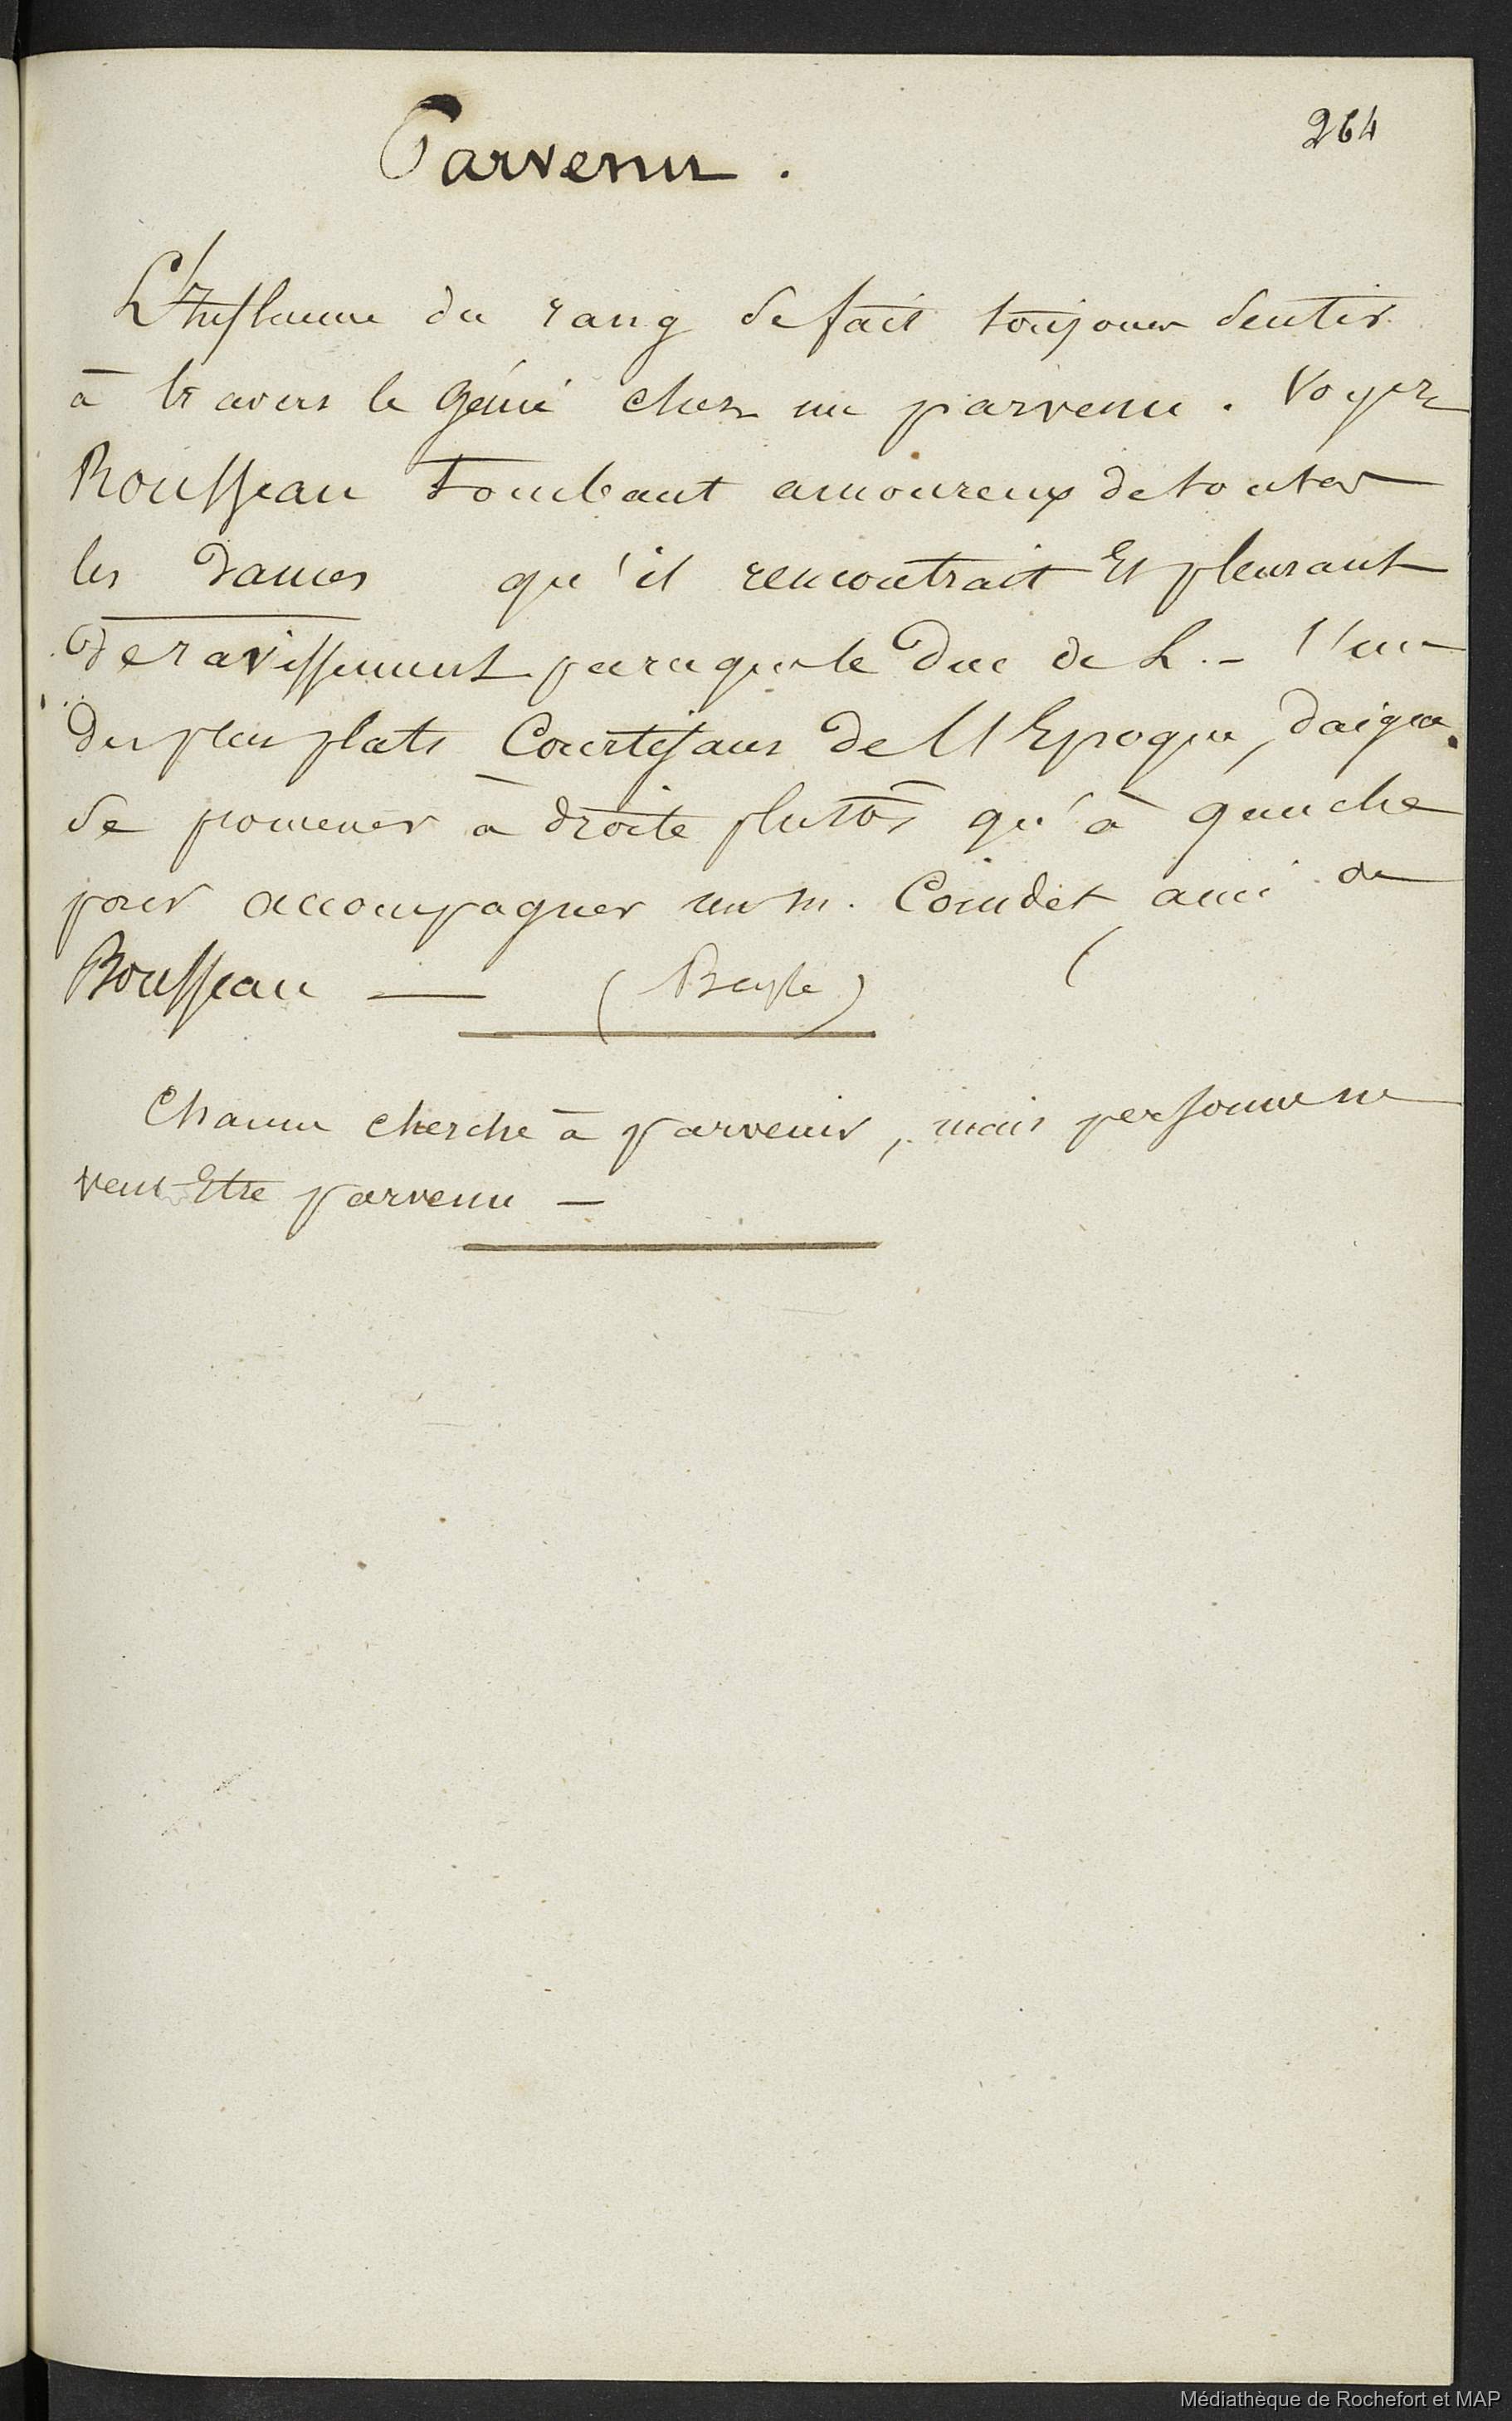 264
Parvenu .
L'Influence du rang se fait toujours sentir
à travers le génie chez un parvenu . Voyez
Rousseau tombant amoureux de toutes
les dames qu'il rencontrait Et pleurant
de ravissement parceque le Duc de L. - l'un
des plus plats Courtisans de l'Epoque, daigne
se promener à droite plutôt qu'à gauche
pour accompagner un m. Coindet ami de
Rousseau — ( Beyle )
Chacun cherche à parvenir, mais personne ne
veut Etre parvenu —
Médiathèque de Rochefort et MAP